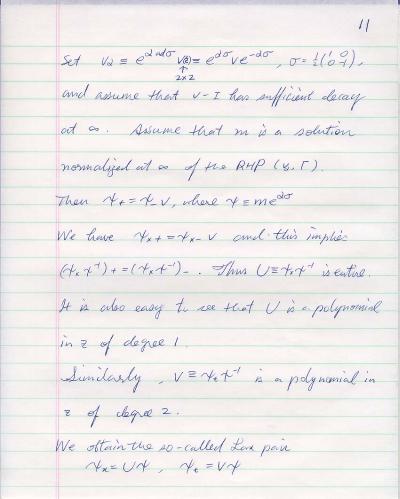 11
Set v_α ≡ e^{α ad σ} v(z) ≡ e^{ασ} v e^{-ασ}, σ = ½(1 0 0 -1),
↑
2×2
and assume that v - I has sufficient decay
at ∞. Assume that m is a solution
normalized at ∞ of the RHP (v_α, Γ).
Then ψ₊ = ψ₋ v, where ψ ≡ m e^{ασ}
We have ψ_{x+} = ψ_{x-} v and this implies
(ψ_x ψ⁻¹)₊ = (ψ_x ψ⁻¹)₋. Thus U ≡ ψ_x ψ⁻¹ is entire.
It is also easy to see that U is a polynomial
in z of degree 1.
Similarly, V ≡ ψ_t ψ⁻¹ is a polynomial in
z of degree 2.
We obtain the so-called Lax pair
ψ_x = Uψ, ψ_t = Vψ